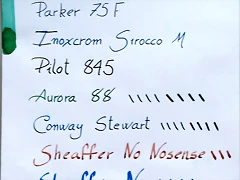 Parker 75 F
Inoxcrom Sirocco M
Pilot 845
Aurora 88
Conway Stewart
Sheaffer No Nosense